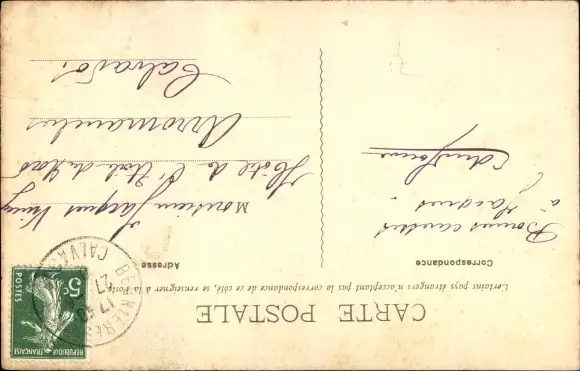 CARTE POSTALE
Certains pays étrangers n'acceptant pas la correspondance de ce côté, se renseigner à la Poste
Correspondance
Adresse
Bonnes amitiés
à Jacques.
Monsieur Jacques
Hôtel de l'Etoile du Nord
Arromanches
Calvados
REPUBLIQUE FRANÇAISE
5c
POSTES
17
27
CALVA